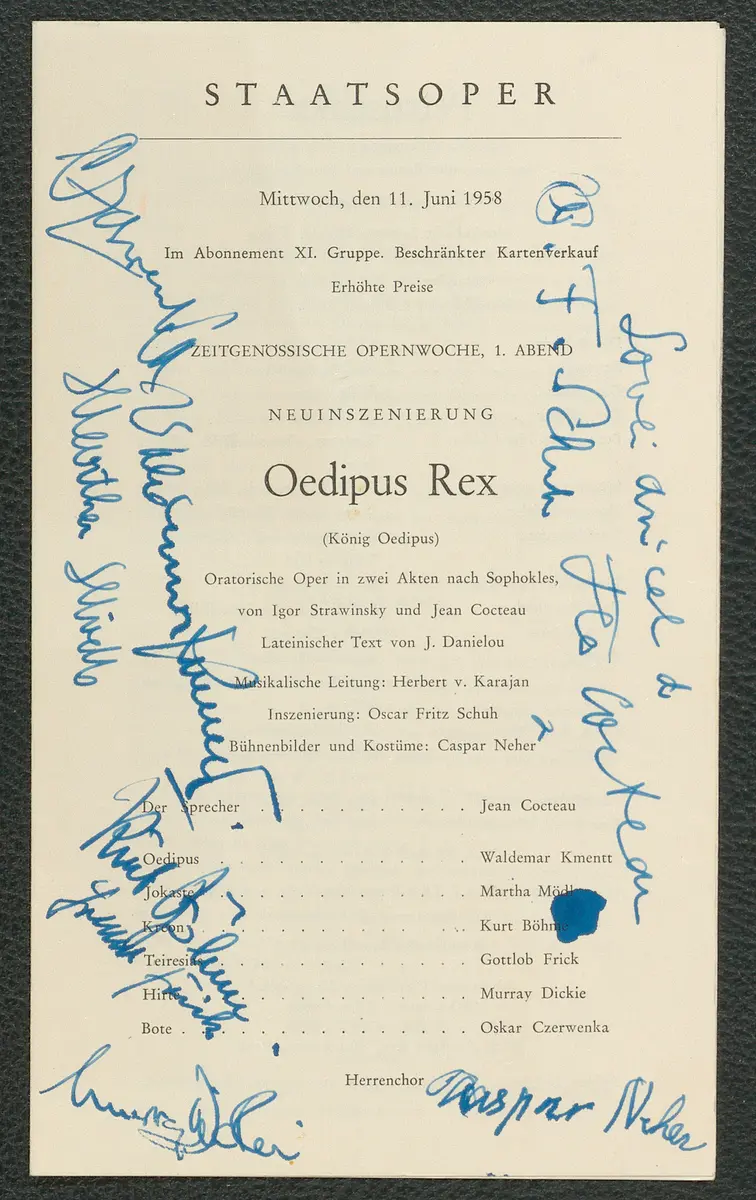 STAATSOPER
Mittwoch, den 11. Juni 1958
Im Abonnement XI. Gruppe. Beschränkter Kartenverkauf
Erhöhte Preise
ZEITGENÖSSISCHE OPERNWOCHE, 1. ABEND
NEUINSZENIERUNG
Oedipus Rex
(König Oedipus)
Oratorische Oper in zwei Akten nach Sophokles,
von Igor Strawinsky und Jean Cocteau
Lateinischer Text von J. Danielou
Musikalische Leitung: Herbert v. Karajan
Inszenierung: Oscar Fritz Schuh
Bühnenbilder und Kostüme: Caspar Neher
Der Sprecher . . . . . . . . . . . . Jean Cocteau
Oedipus . . . . . . . . . . . . . . Waldemar Kmentt
Jokaste . . . . . . . . . . . . . . Martha Mödl
Kreon . . . . . . . . . . . . . . . Kurt Böhme
Teiresias . . . . . . . . . . . . . Gottlob Frick
Hirte . . . . . . . . . . . . . . . Murray Dickie
Bote . . . . . . . . . . . . . . . . Oskar Czerwenka
Herrenchor
Caspar Neher
Waldemar Kmentt
Kurt Böhme
Cocteau